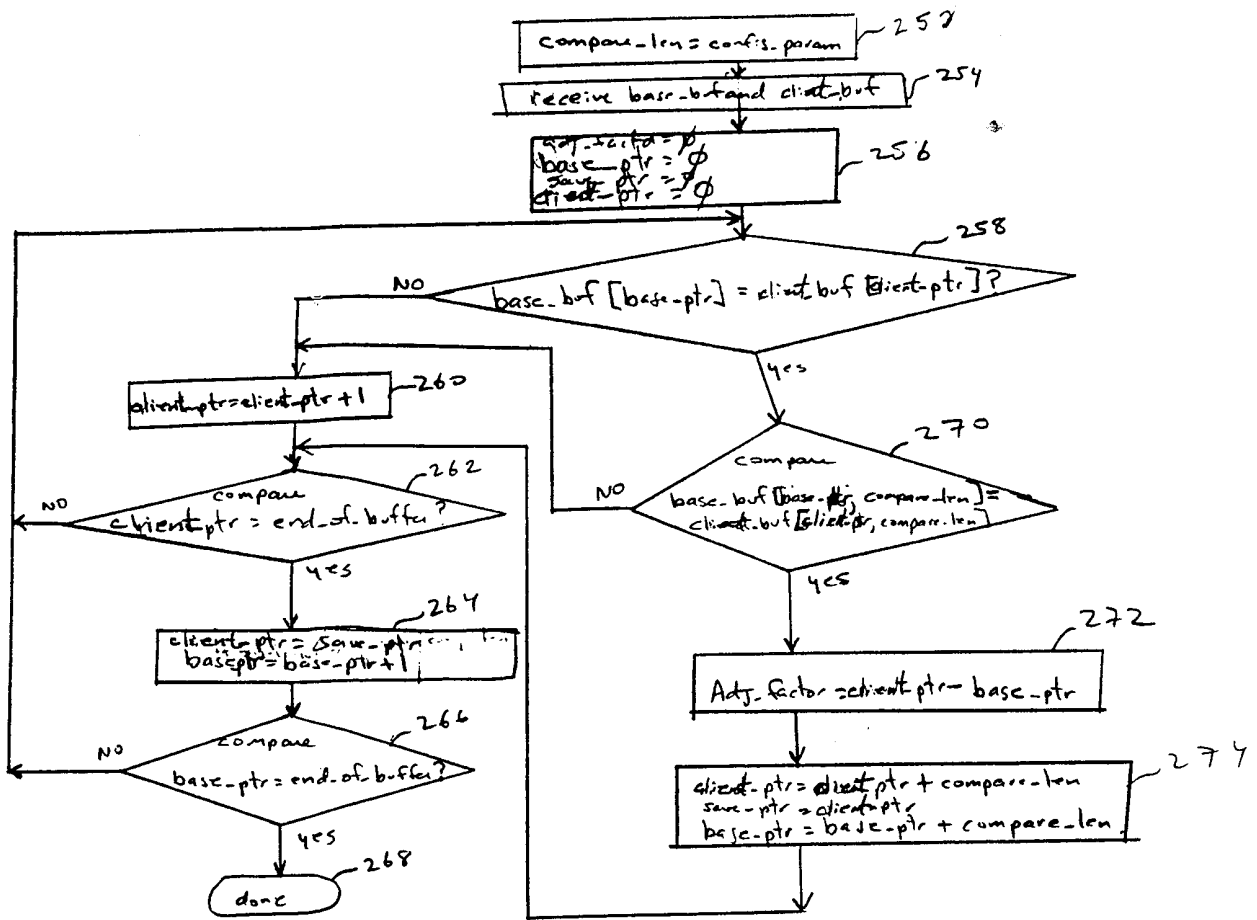 compare_len = config_param
252
receive base_buf and client_buf
254
adj_factor = ∅
base_ptr = ∅
save_ptr = ∅
client_ptr = ∅
256
258
base_buf [base_ptr] = client_buf [client_ptr]?
NO
yes
client_ptr = client_ptr + 1
260
262
compare
client_ptr = end_of_buffer?
NO
yes
264
client_ptr = save_ptr
base_ptr = base_ptr + 1
266
compare
base_ptr = end_of_buffer?
NO
yes
268
done
270
compare
base_buf [base_ptr, compare_len] =
client_buf [client_ptr, compare_len]
NO
yes
272
Adj_factor = client_ptr - base_ptr
274
client_ptr = client_ptr + compare_len
save_ptr = client_ptr
base_ptr = base_ptr + compare_len